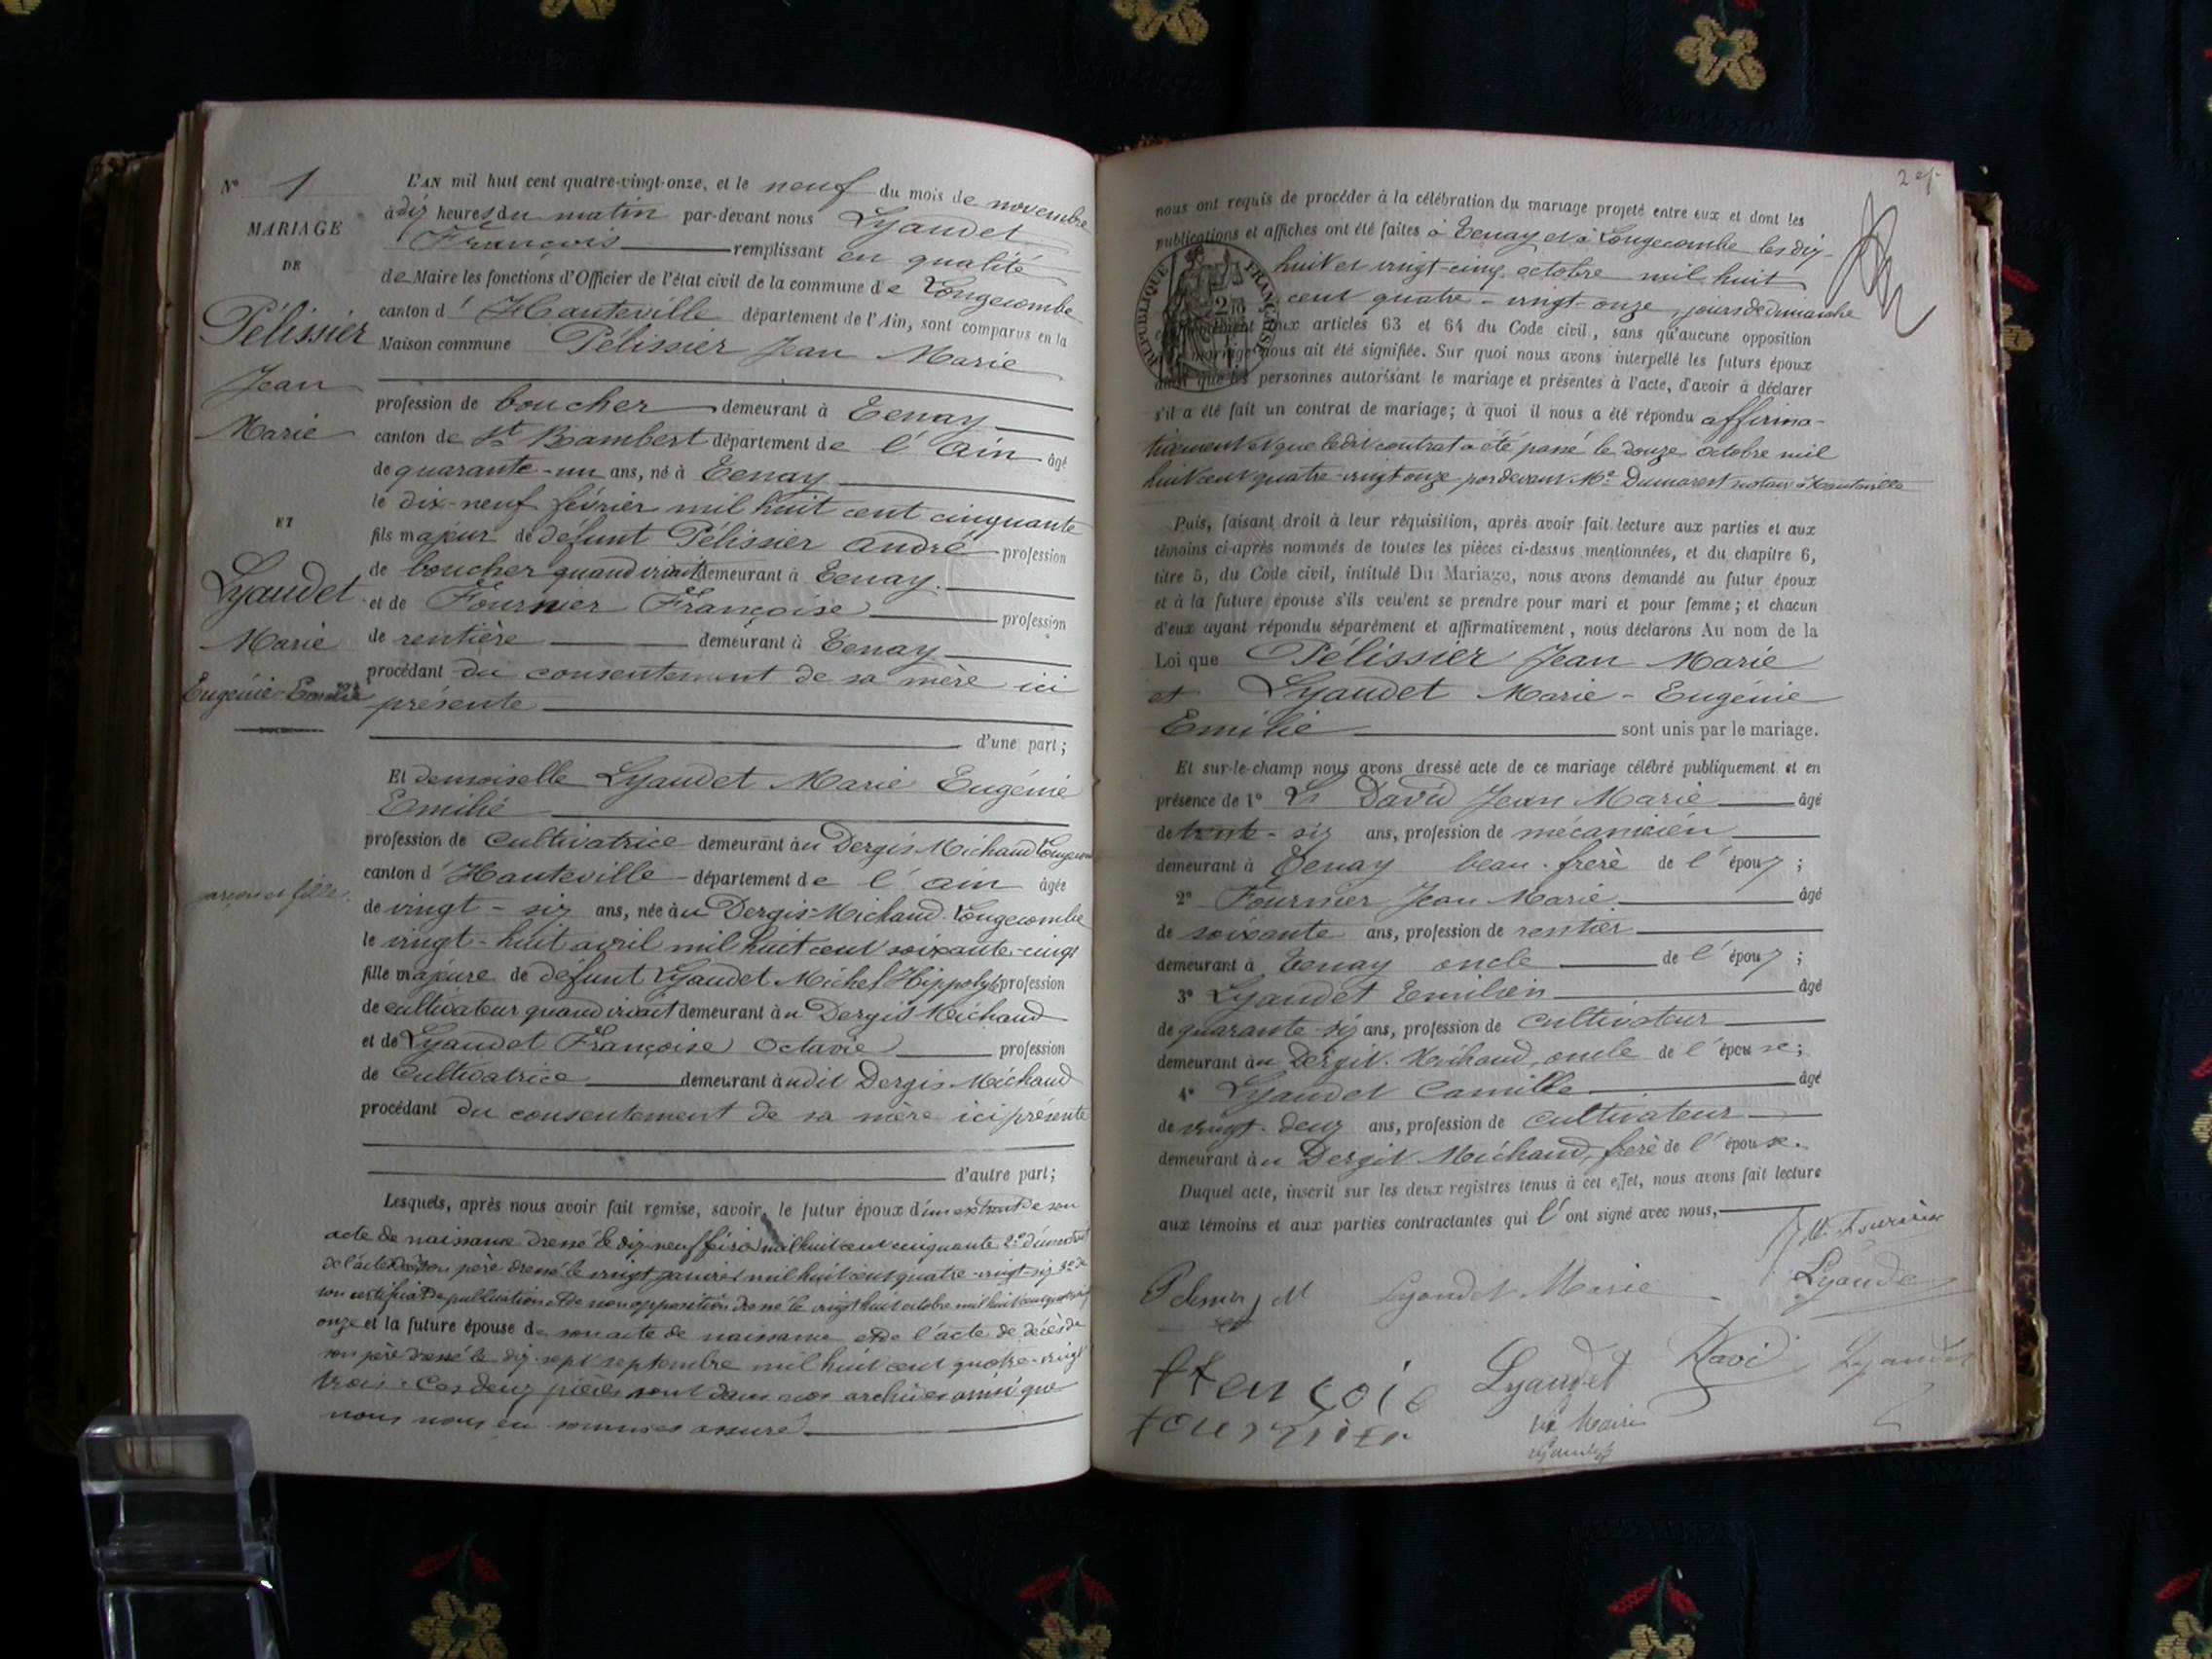 N° 1
MARIAGE
DE
Pélissier
Jean
Marie
ET
Lyaudet
Marie
Eugénie-Emilie
garçon et fille.
L'AN mil huit cent quatre-vingt-onze, et le neuf du mois de novembre
à dix heures du matin par-devant nous Lyaudet
François remplissant en qualité
de Maire les fonctions d'Officier de l'état civil de la commune de Longecombe
canton d' Hauteville département de l'Ain, sont comparus en la
Maison commune Pélissier Jean Marie
profession de boucher demeurant à Tenay
canton de St Rambert département de l' Ain âgé
de quarante-un ans, né à Tenay
le dix-neuf février mil huit cent cinquante
fils majeur de défunt Pélissier André profession
de boucher quand vivait demeurant à Tenay.
et de Fournier Françoise profession
de rentière demeurant à Tenay
procédant du consentement de sa mère ici
présente
d'une part;
Et demoiselle Lyaudet Marie Eugénie
Emilie
profession de cultivatrice demeurant au Dergis Michaud
canton d' Hauteville département de l' Ain âgée
de vingt-six ans, née au Dergis-Michaud Longecombe
le vingt-huit avril mil huit cent soixante-cinq
fille majeure de défunt Lyaudet Michel Hippolyte profession
de cultivateur quand vivait demeurant au Dergis Michaud
et de Lyaudet Françoise Octavie profession
de Cultivatrice demeurant audit Dergis Michaud
procédant du consentement de sa mère ici présente
d'autre part;
Lesquels, après nous avoir fait remise, savoir, le futur époux d'un extrait de son
acte de naissance dressé le dix-neuf février mil huit cent cinquante 2°
de l'acte de son père dressé le vingt janvier mil huit cent quatre-vingt-six 3° de
son certificat de publication et de non opposition dressé le vingt huit octobre mil huit cent
onze et la future épouse de son acte de naissance et de l'acte de décès de
son père dressé le dix-sept septembre mil huit cent quatre-vingt
trois. Ces deux pièces sont dans nos archives ainsi que
nous nous en sommes assuré.
nous ont requis de procéder à la célébration du mariage projeté entre eux et dont les
publications et affiches ont été faites à Tenay et à Longecombe les dix-
huit et vingt-cinq octobre mil huit
cent quatre-vingt-onze, jours de dimanche
RÉPUBLIQUE FRANÇAISE
conformément aux articles 63 et 64 du Code civil, sans qu'aucune opposition
mariage nous ait été signifiée. Sur quoi nous avons interpellé les futurs époux
ainsi que les personnes autorisant le mariage et présentes à l'acte, d'avoir à déclarer
s'il a été fait un contrat de mariage; à quoi il nous a été répondu affirma-
tivement et que ledit contrat a été passé le douze octobre mil
huit cent quatre-vingt onze par devant Me Dumarest notaire à Hauteville
Puis, faisant droit à leur réquisition, après avoir fait lecture aux parties et aux
témoins ci-après nommés de toutes les pièces ci-dessus mentionnées, et du chapitre 6,
titre 5, du Code civil, intitulé Du Mariage, nous avons demandé au futur époux
et à la future épouse s'ils veulent se prendre pour mari et pour femme; et chacun
d'eux ayant répondu séparément et affirmativement, nous déclarons Au nom de la
Loi que Pélissier Jean Marie
et Lyaudet Marie-Eugénie
Emilie sont unis par le mariage.
Et sur-le-champ nous avons dressé acte de ce mariage célébré publiquement et en
présence de 1° David Jean Marie âgé
de trente-six ans, profession de mécanicien
demeurant à Tenay beau-frère de l'époux;
2° Fournier Jean Marie âgé
de soixante ans, profession de rentier
demeurant à Tenay oncle de l'époux;
3° Lyaudet Emilien âgé
de quarante six ans, profession de cultivateur
demeurant au Dergit-Michaud, oncle de l'épouse;
4° Lyaudet Camille âgé
de vingt-deux ans, profession de cultivateur
demeurant au Dergit Michaud, frère de l'épouse.
Duquel acte, inscrit sur les deux registres tenus à cet effet, nous avons fait lecture
aux témoins et aux parties contractantes qui l'ont signé avec nous,
Lyaudet Marie
Lyaudet
Lyaudet
Davi
Lyaudet
Fournier
Le Maire
Lyaudet